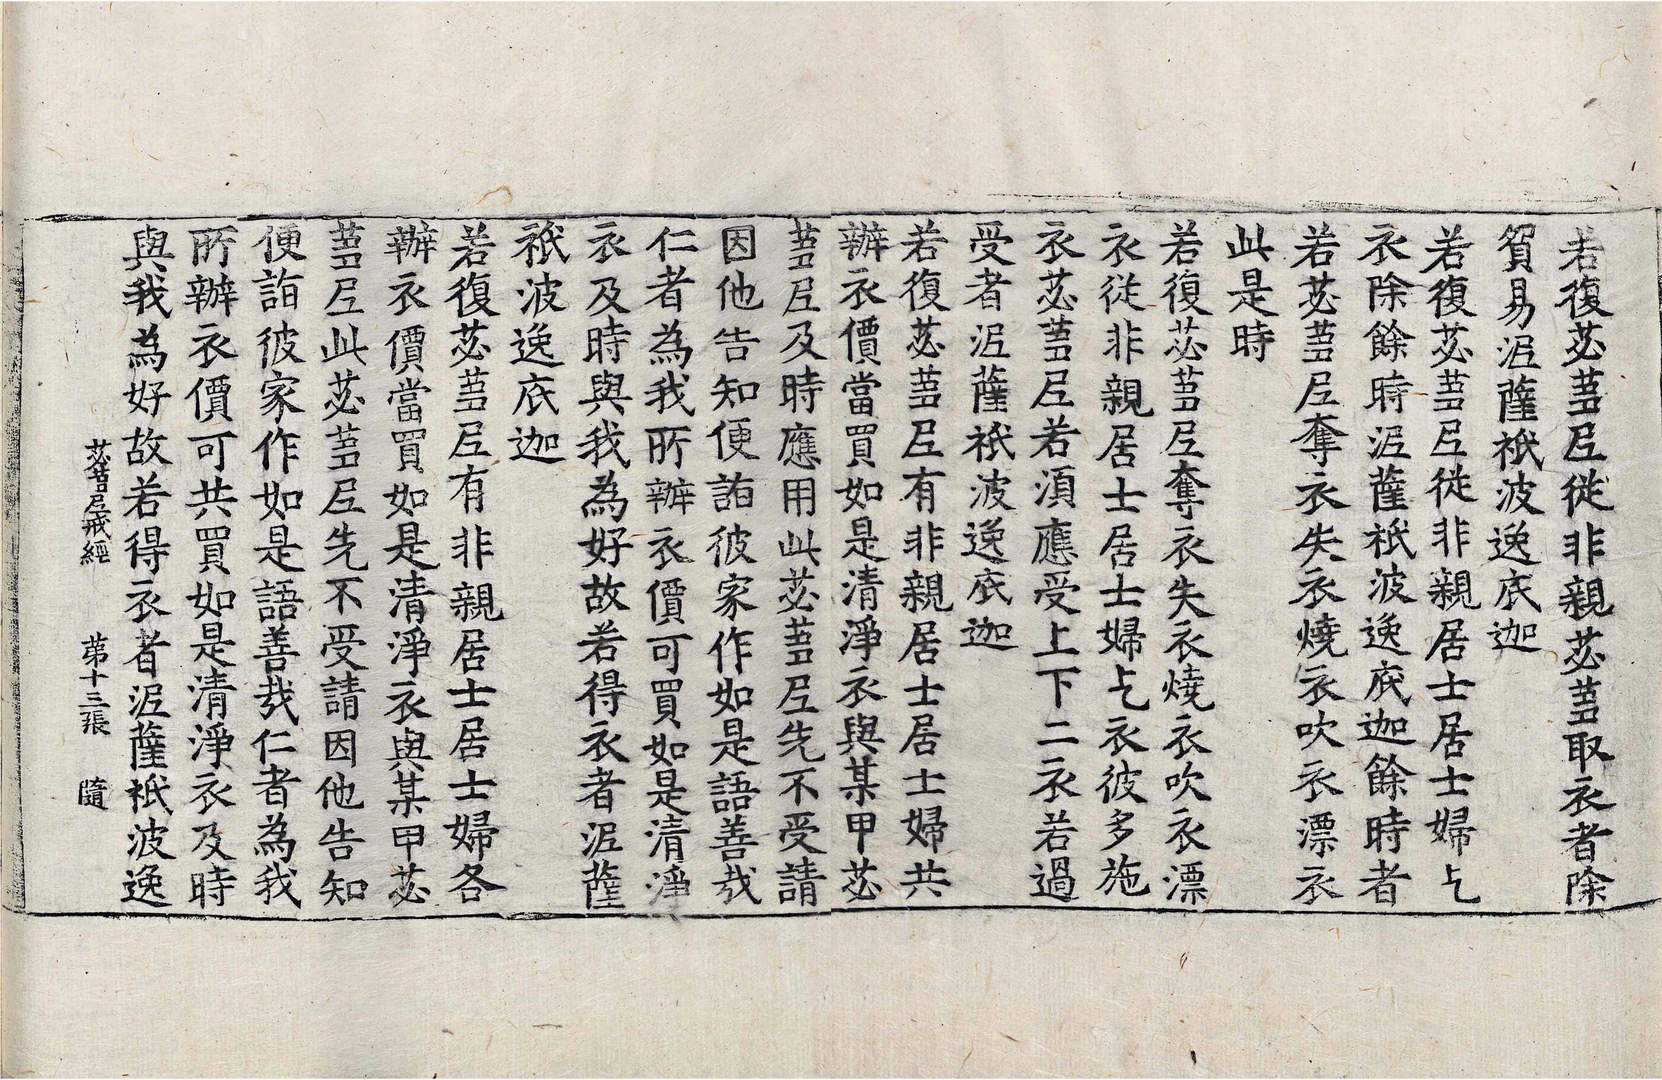 若復苾蒭尼從非親苾蒭取衣者除
貿易泥薩祇波逸底迦
若復苾蒭尼從非親居士居士婦乞
衣除餘時泥薩祇波逸底迦餘時者
若苾蒭尼奪衣失衣燒衣吹衣漂衣
此是時
若復苾蒭尼奪衣失衣燒衣吹衣漂
衣從非親居士居士婦乞衣彼多施
衣苾蒭尼若須應受上下二衣若過
受者泥薩祇波逸底迦
若復苾蒭尼有非親居士居士婦共
辦衣價當買如是清淨衣與某甲苾
蒭尼及時應用此苾蒭尼先不受請
因他告知便詣彼家作如是語善哉
仁者為我所辦衣價可買如是清淨
衣及時與我為好故若得衣者泥薩
祇波逸底迦
若復苾蒭尼有非親居士居士婦各
辦衣價當買如是清淨衣與某甲苾
蒭尼此苾蒭尼先不受請因他告知
便詣彼家作如是語善哉仁者為我
所辦衣價可共買如是清淨衣及時
與我為好故若得衣者泥薩祇波逸
苾蒭尼戒經 第十三張 隨